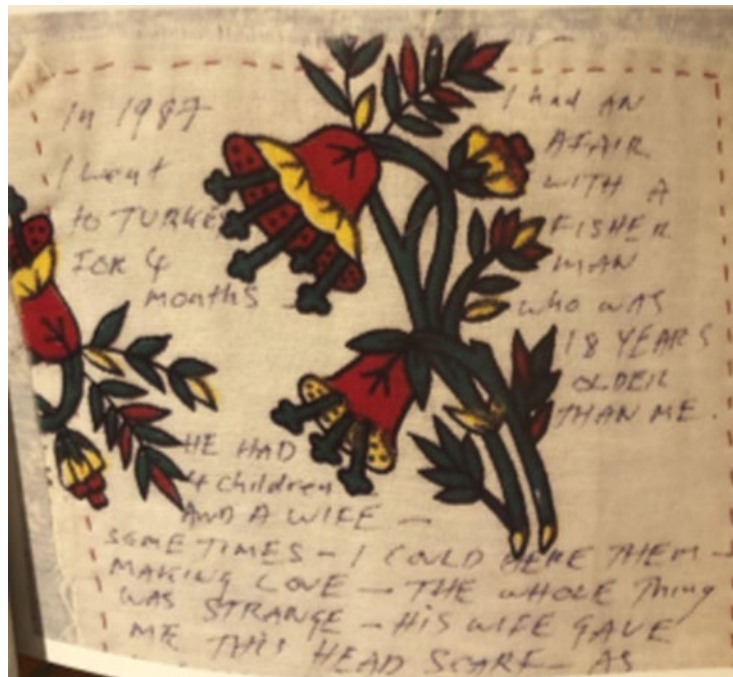 In 1987
I went
to TURKEY
FOR 4
months –
I had AN
AFAIR
WITH A
FISHER
MAN
who WAS
18 YEARS
OLDER
THAN ME.
HE HAD
4 children
AND A WIFE –
SOMETIMES – I COULD HERE THEM –
MAKING LOVE – THE WHOLE Thing
WAS STRANGE – HIS WIFE GAVE
ME THIS HEAD SCARF – AS